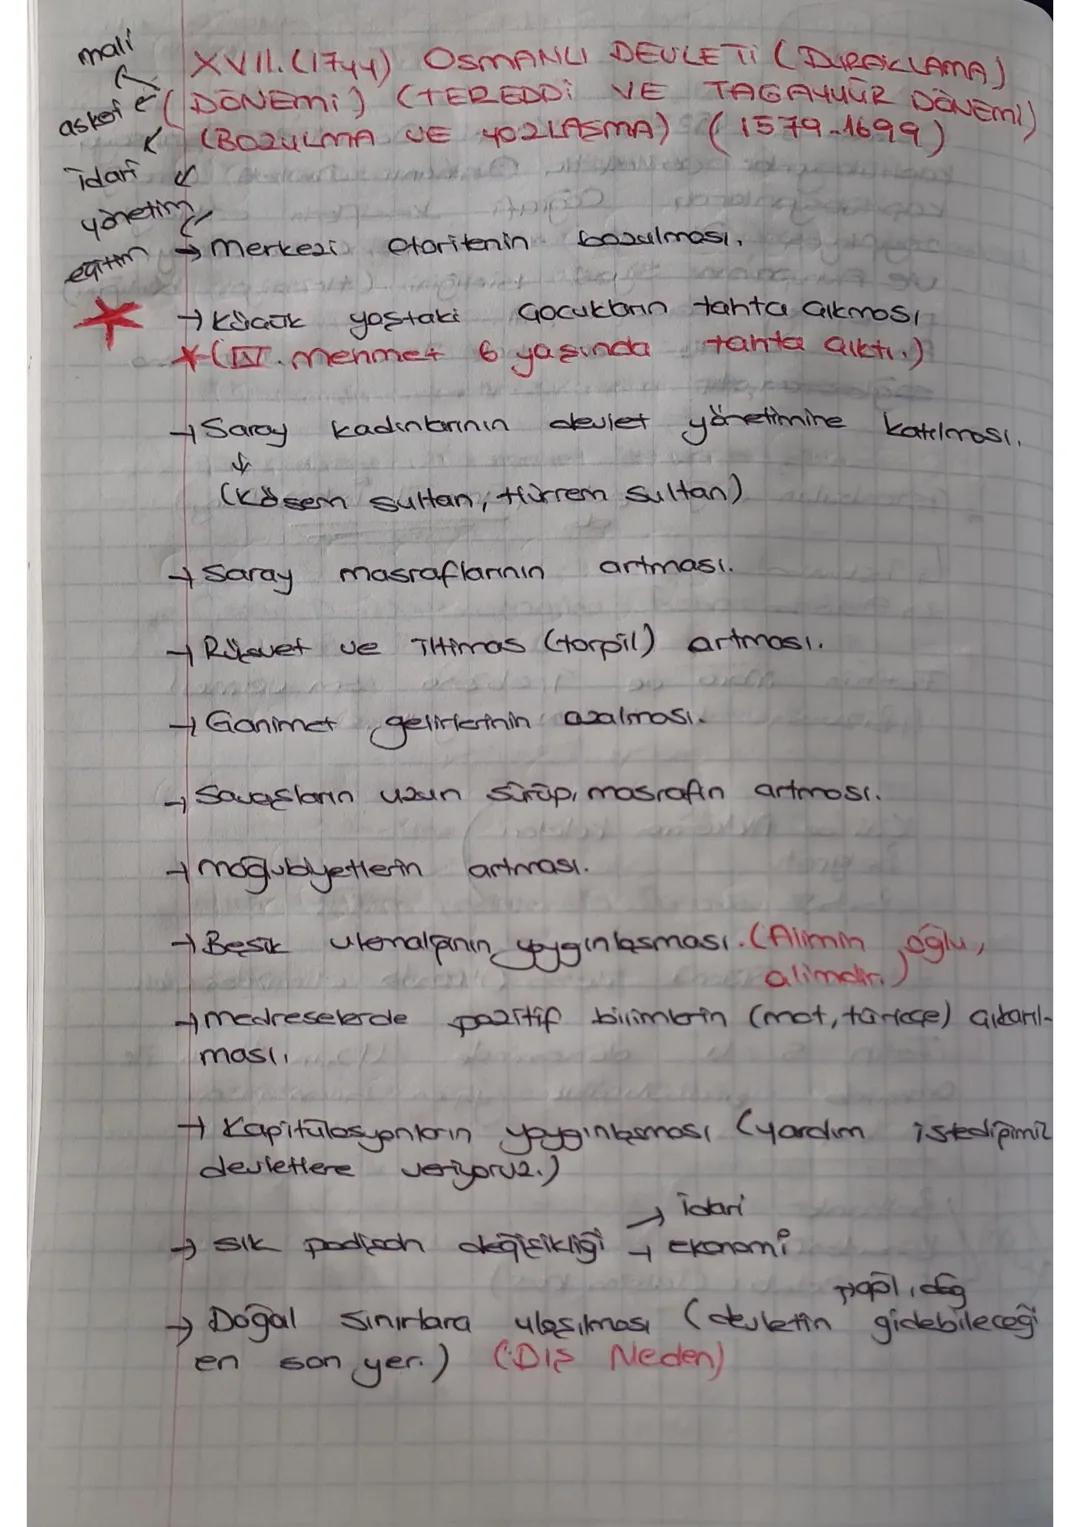 mali
askeri
idari
yönetim
eğitim
XVII. (1744) OSMANLI DEVLETİ (DURAKLAMA)
(DÖNEMİ) (TEREDDİ VE TAGAYYÜR DÖNEMİ)
(BOZULMA VE YOZLAŞMA) (1579-1699)
→ Merkezi otoritenin bozulması.
→ Küçük yaştaki çocukların tahta çıkması
* (IV. Mehmet 6 yaşında tahta çıktı.)
→ Saray kadınlarının devlet yönetimine katılması.
↓
(Kösem sultan, Hürrem sultan)
→ Saray masraflarının artması.
→ Rüşvet ve İltimas (torpil) artması.
→ Ganimet gelirlerinin azalması.
→ Savaşların uzun sürüp, masrafın artması.
→ mağlubiyetlerin artması.
→ Beşik ulemalığının yaygınlaşması. (Alimin oğlu,
alimdir.)
→ medreselerde pozitif bilimlerin (mat, türkçe) çıkarıl-
ması.
→ Kapitülasyonların yaygınlaşması (yardım istediğimiz
devletlere veriyoruz.)
→ idari
→ sık padişah değişikliği → ekonomi
dağ
→ Doğal sınırlara ulaşılması (devletin gidebileceği
en son yer.) (Dış Neden)